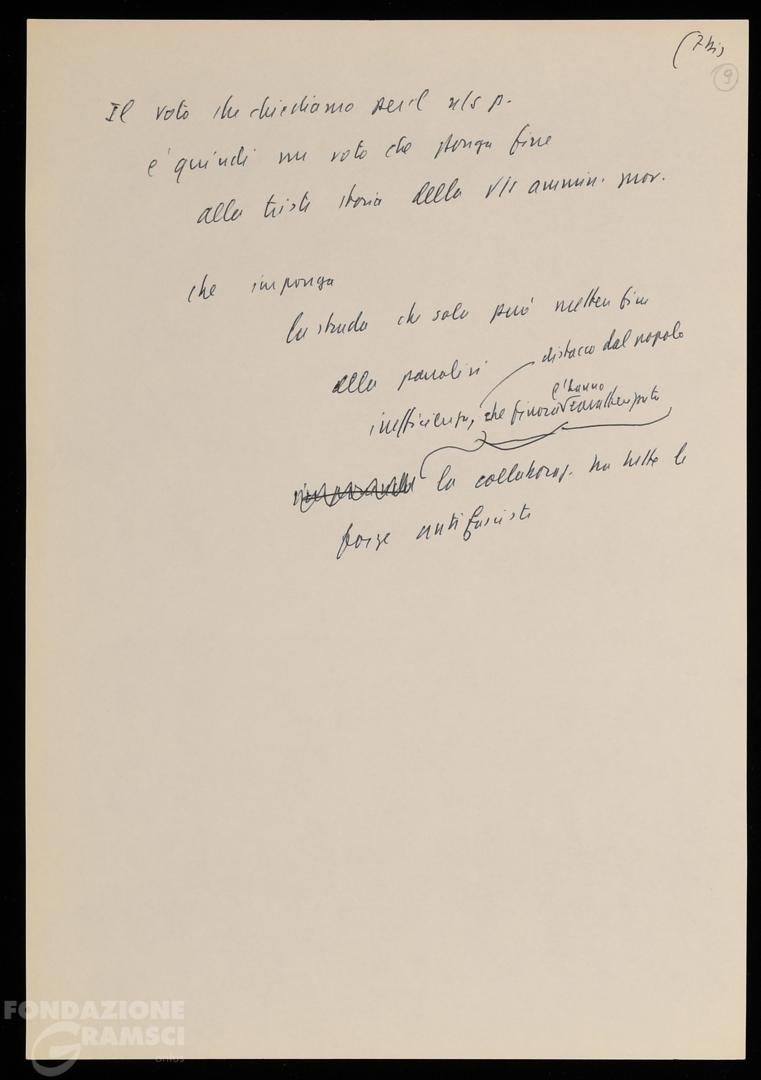 (7 bis
9
Il voto che chiediamo per il n/s p.
e' quindi un voto che ponga fine
alla triste storia della v/s ammin. mor.
che imponga
la strada che sola può metter fine
alla paralisi
distacco dal popolo
inefficienza, che finora
e' hanno
la collaboraz. tra tutte le
forze antifasciste
FONDAZIONE
GRAMSCI
onlus